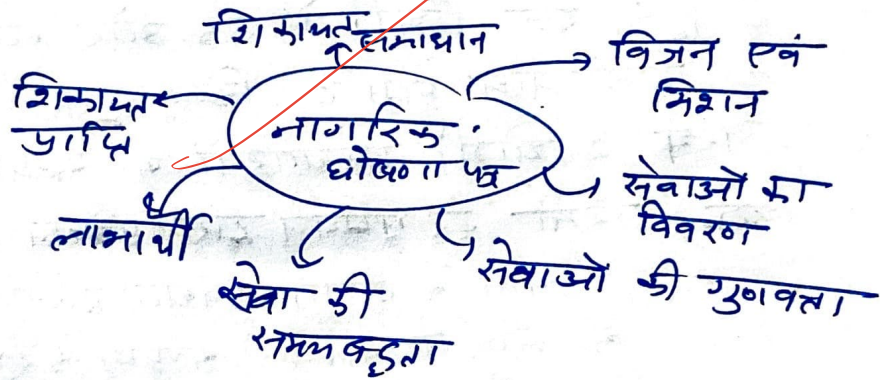 शिकायत समाधान
विजन एवं
मिशन
शिकायत
प्राप्ति
नागरिक
घोषणा पत्र
सेवाओं का
विवरण
लाभार्थी
सेवाओं की गुणवत्ता
सेवा की
समयबद्धता